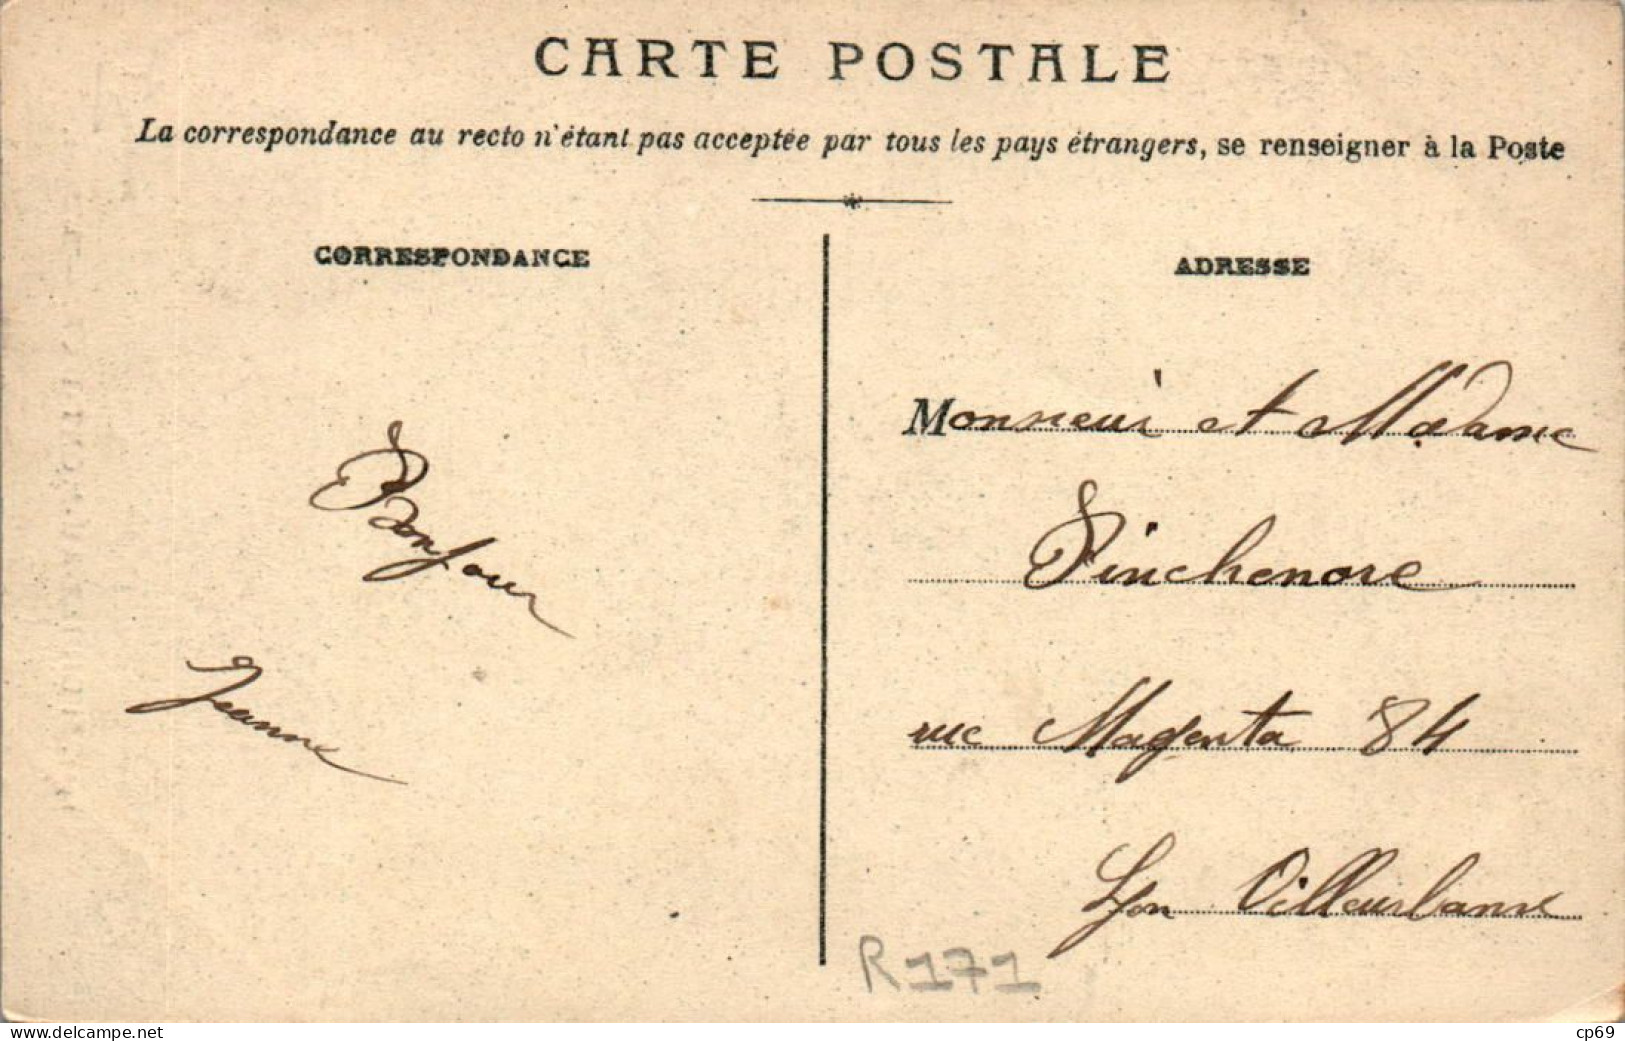 CARTE POSTALE
La correspondance au recto n'étant pas acceptée par tous les pays étrangers, se renseigner à la Poste
CORRESPONDANCE
Bonjour
Jeanne
ADRESSE
Monsieur et Madame
Pinchenore
rue Magenta 84
Lyon Villeurbanne
R171
www.delcampe.net
cp69